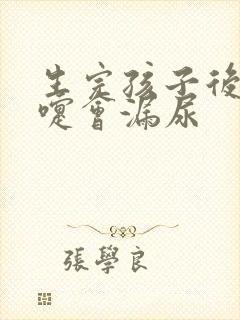 生完孩子後
嚏會漏尿
張學良